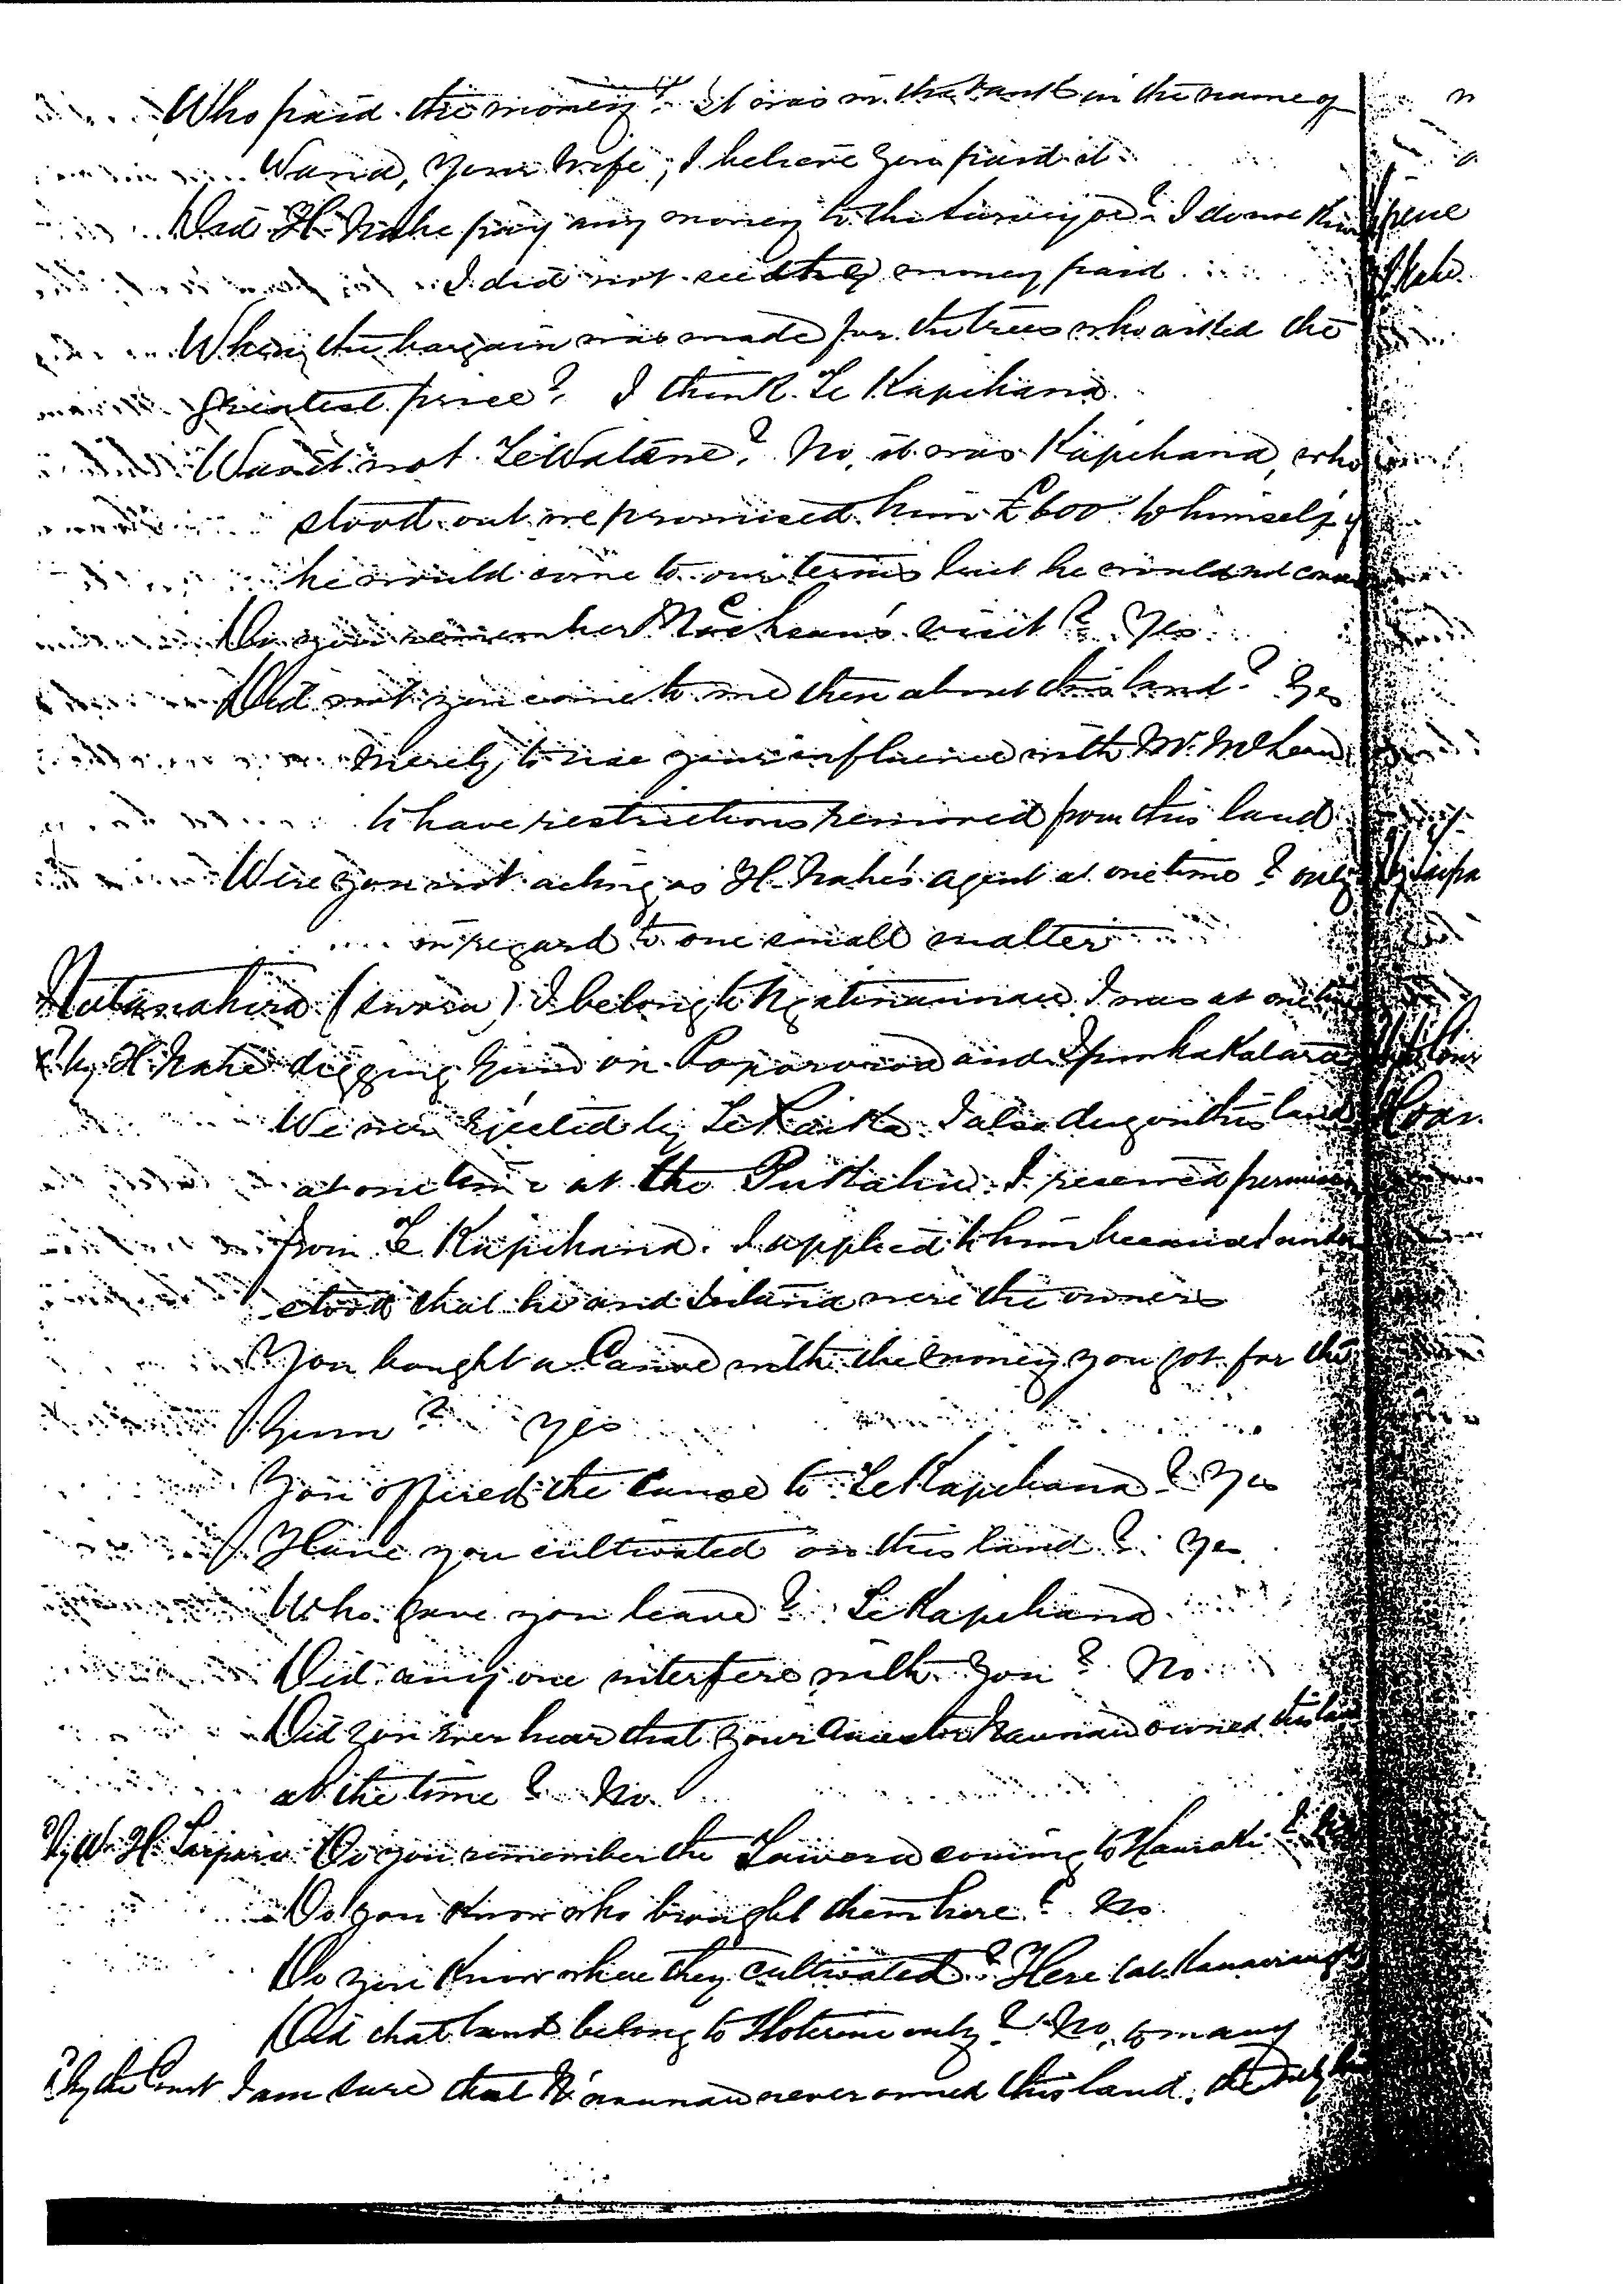 Who paid the money? It was in the bank in the name of
your wife; I believe you paid it.
Did H. Nahe pay any money to the Surveyor? I do not
I did not see the money paid.
When the bargain was made for the trees who asked the
greatest price? I think Te Kapihana.
Was it not Te Watene? No, it was Kapihana, who
stood out we promised him £600 to himself if
he would come to our terms but he would not
Do you remember McLean's visit? Yes.
Did not you come to me then about this land? Yes
merely to use your influence with Mr. McLean
to have restrictions removed from this land
Were you not acting as H. Nahe's agent at one time? only
in regard to one small matter
(sworn) I belong to Ngatinaunau. I was at one
? by H. Nahe digging Gum on and
We were ejected by Te Raika. I also dug on this land
at one time at the I received
from Te Kapihana. I applied to him because I under
stood that he and were the owners
You bought a Canoe with the money you got for the
Gum? Yes
You offered the Canoe to Te Kapihana? Yes
Have you cultivated on this land? Yes.
Who gave you leave? Te Kapihana.
Did any one interfere with you? No.
Did you ever hear that your Ancestor Naunau owned this
at the time? No.
? by W. H. Taipari Do you remember the Tawera coming to Hauraki?
Do you know who brought them here? No.
Do you know where they cultivated? Here (at
Did that land belong to Hoterene only? No, to many
? by the Court I am sure that N' naunau never owned this land, the